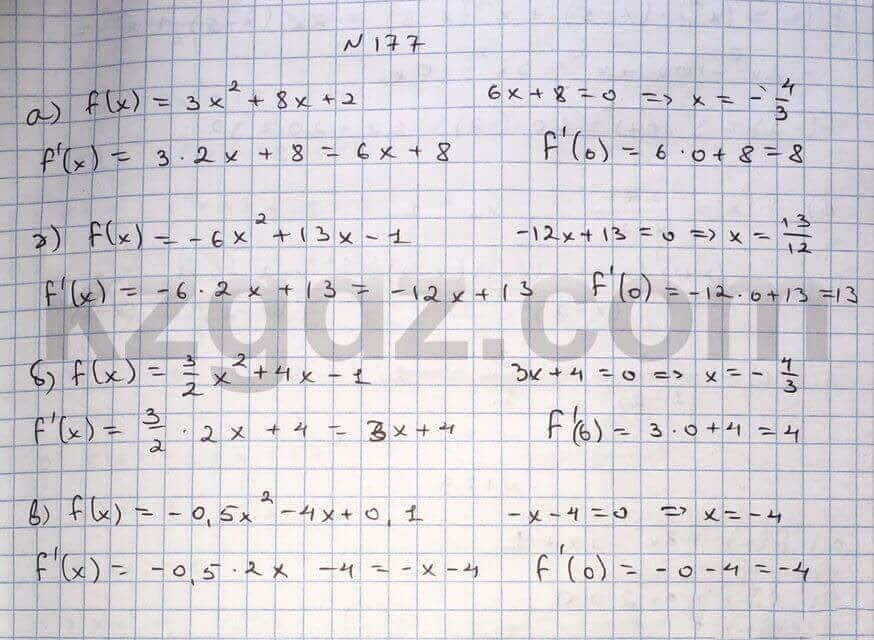 N 177
а) f(x) = 3x² + 8x + 2    6x + 8 = 0 => x = - 4/3
f'(x) = 3 · 2x + 8 = 6x + 8    f'(0) = 6 · 0 + 8 = 8
г) f(x) = -6x² + 13x - 1    -12x + 13 = 0 => x = 13/12
f'(x) = -6 · 2x + 13 = -12x + 13    f'(0) = -12 · 0 + 13 = 13
kzgdz.com
б) f(x) = 3/2 x² + 4x - 1    3x + 4 = 0 => x = - 4/3
f'(x) = 3/2 · 2x + 4 = 3x + 4    f'(0) = 3 · 0 + 4 = 4
в) f(x) = -0,5x² - 4x + 0,1    -x - 4 = 0 => x = -4
f'(x) = -0,5 · 2x - 4 = -x - 4    f'(0) = -0 - 4 = -4